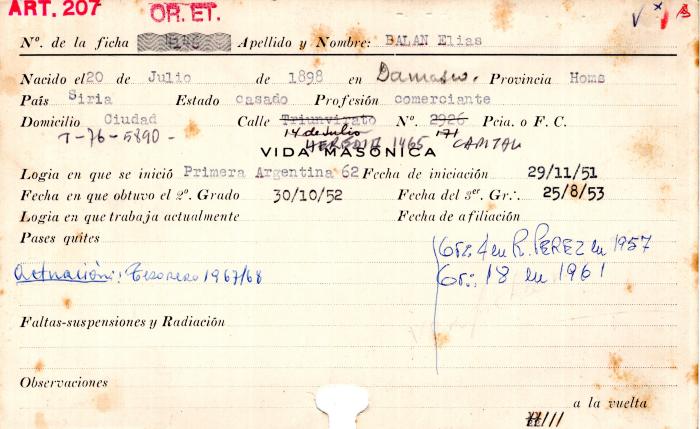 ART. 207
OR. ET.
Nº. de la ficha Apellido y Nombre: BALAN Elias
Nacido el 20 de Julio de 1898 en Damasco. Provincia Homs
País Siria Estado casado Profesión comerciante
Domicilio Ciudad Calle Triunvirato Nº. 2926 Pcia. o F. C.
T-76-5890- 14 de Julio 171
HEREDIA 1465 CAPITAL
VIDA MASÓNICA
Logia en que se inició Primera Argentina 62 Fecha de iniciación 29/11/51
Fecha en que obtuvo el 2º. Grado 30/10/52 Fecha del 3er Gr∴. 25/8/53
Logia en que trabaja actualmente Fecha de afiliación
Pases quites
Gr∴ 4 en R. PEREZ en 1957
Actuación: Tesorero 1967/68 Gr∴ 18 en 1961
Faltas-suspensiones y Radiación
Observaciones
a la vuelta